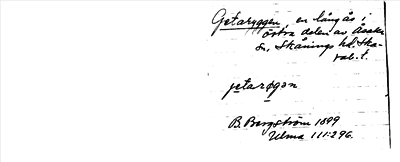 Getaryggen, en lång ås i
östra delen av Åsaka
sn. Skånings hd. Ska-
rab. l.
jetarøgan
B. Bergström 1899
Ulma 111:296.